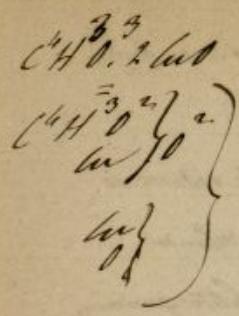 C⁴H³O³. 2CuO
C⁴H³O²} O²
Cu
Cu}
O